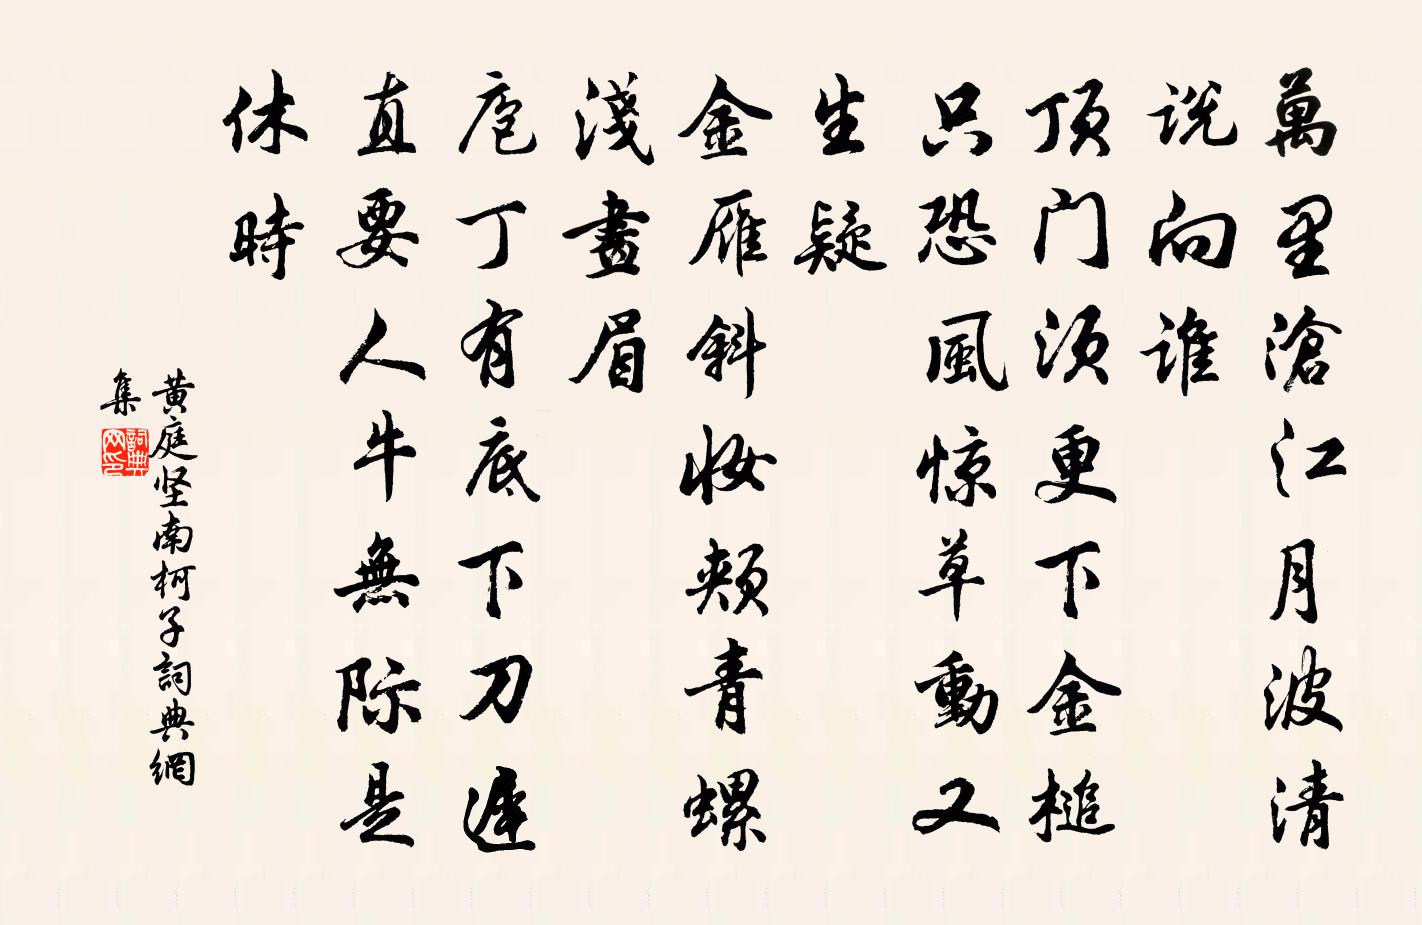 萬里滄江月波清
说向谁
顶门须更下金槌
只恐風惊草動又
生疑
金雁斜妆頰青螺
淺畫眉
庖丁有底下刀遲
直要人牛無际是
休時
黄庭坚南柯子詞典網
集
詞典
网印